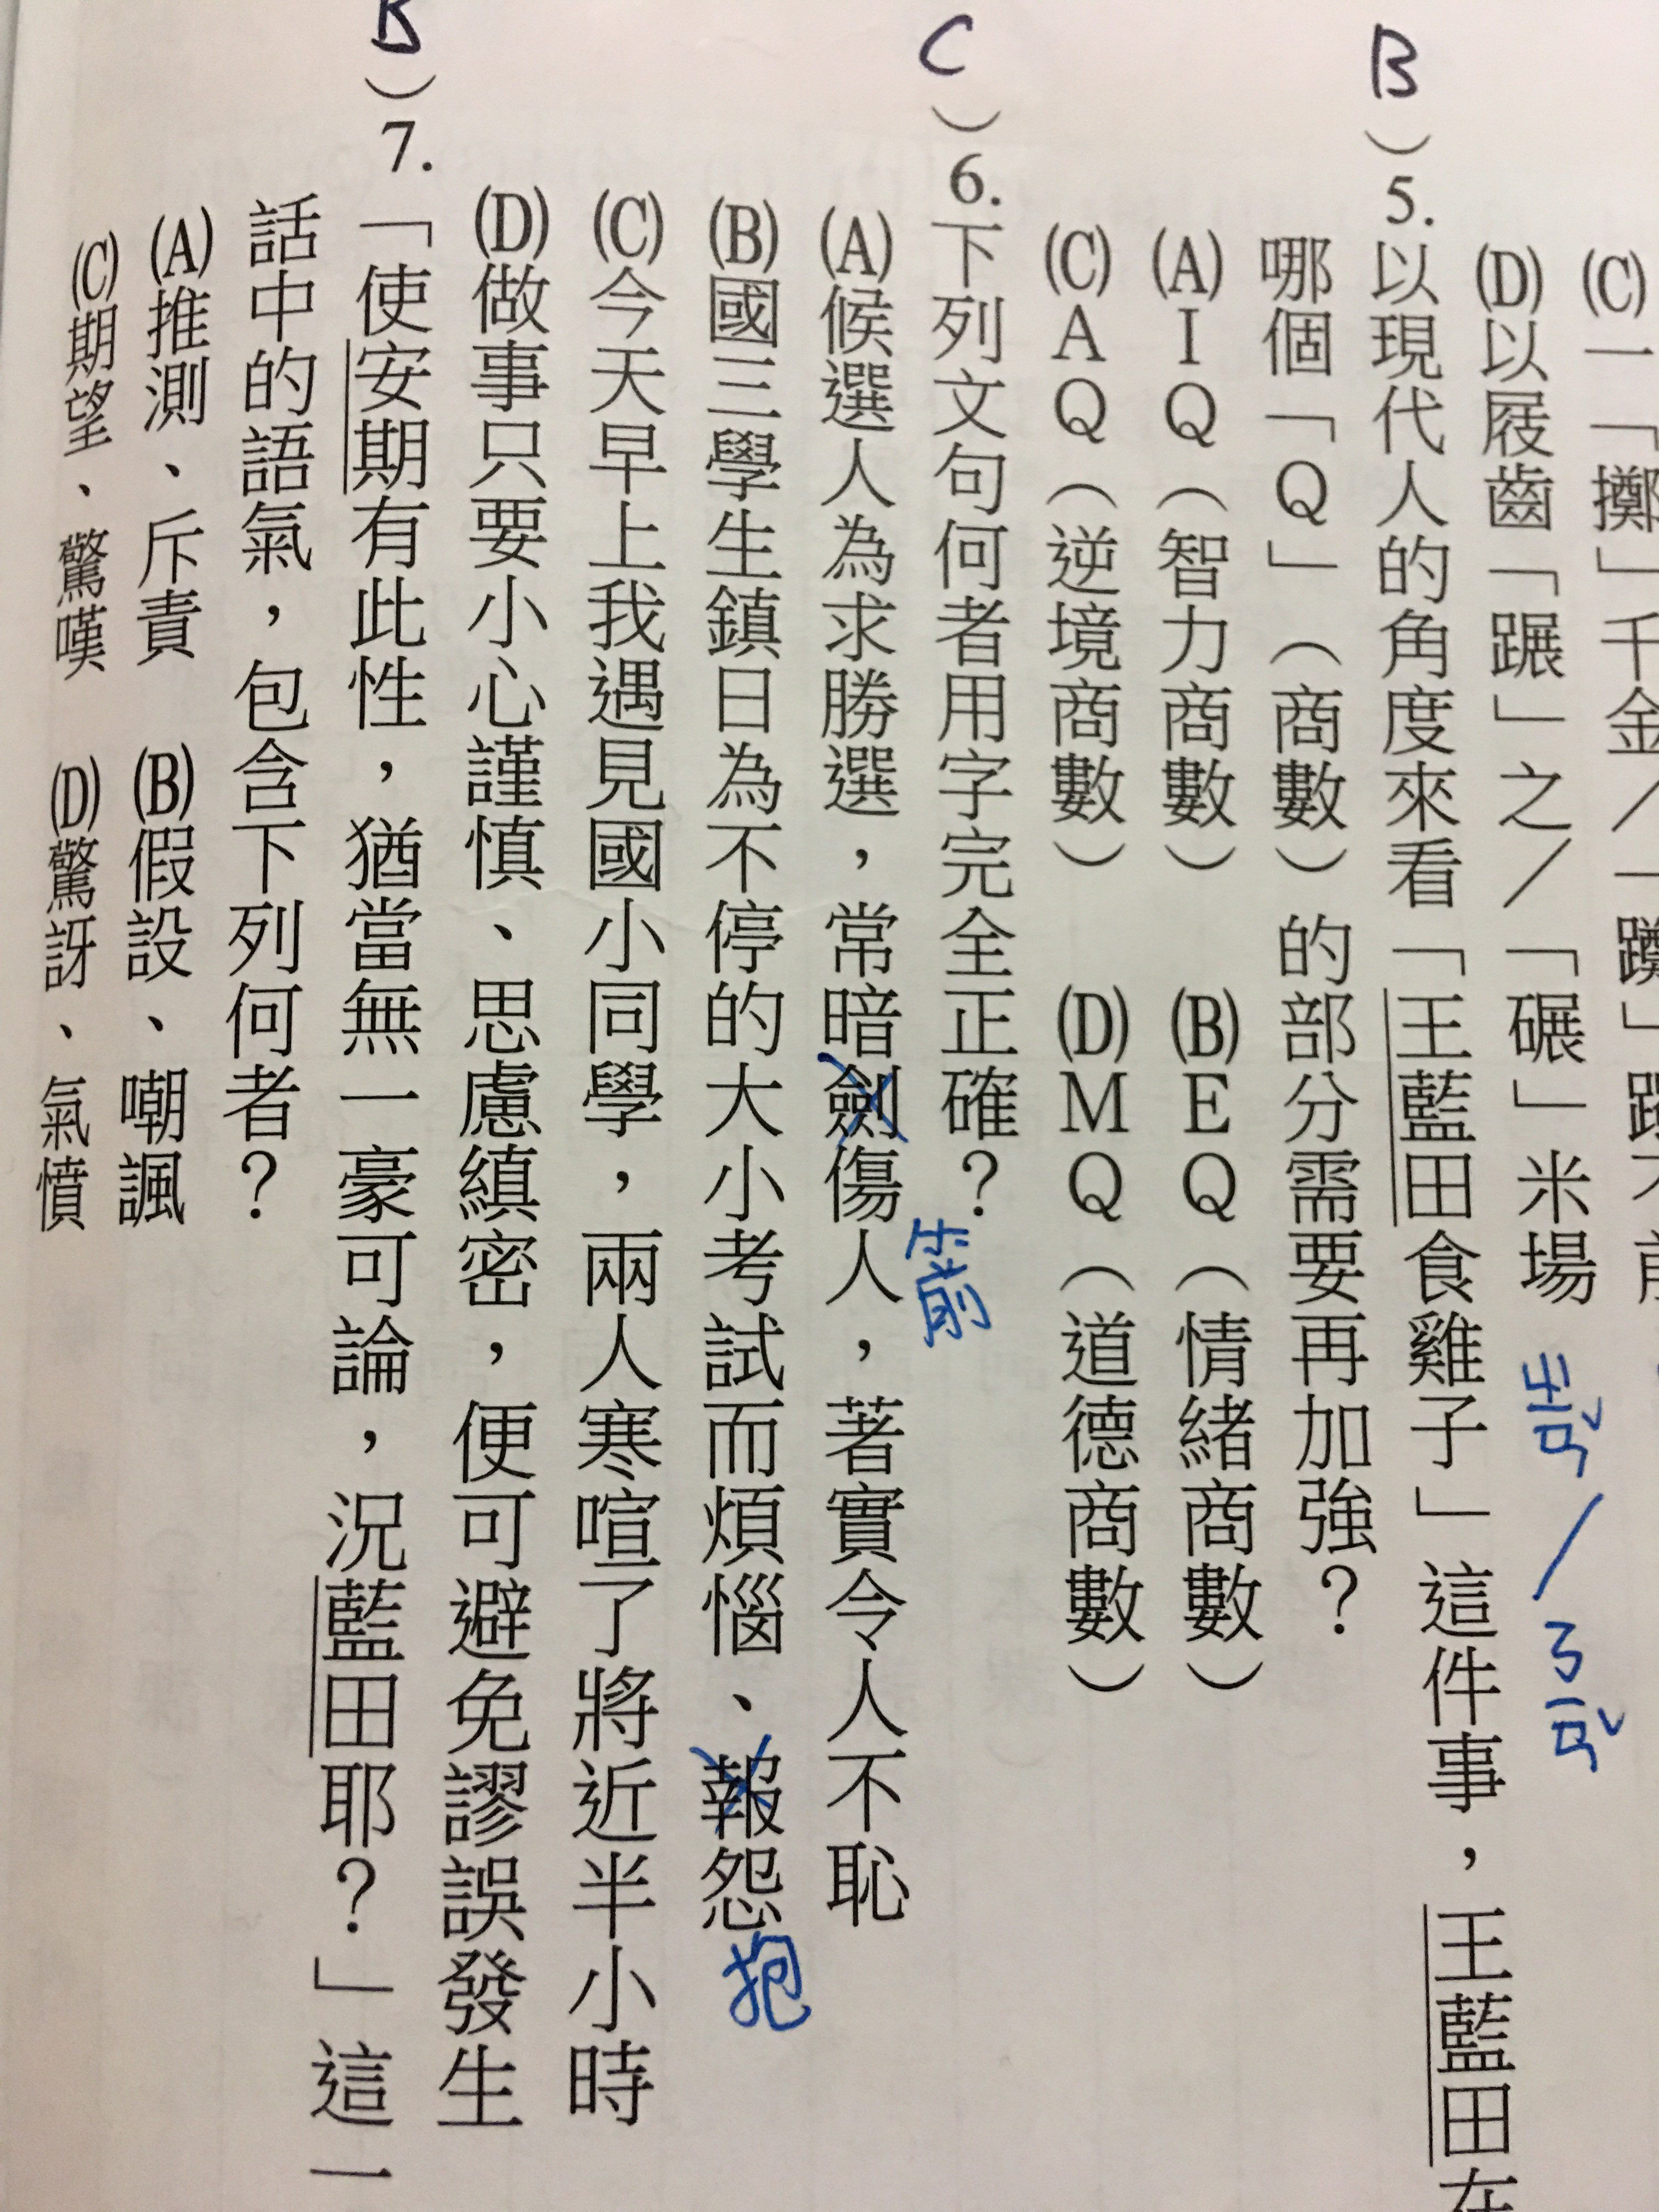 (C)一「擲」千金／一「躑」
(D)以屐齒「蹍」之／「碾」米場 ㄓㄢˇ／ㄋㄢˇ
B）5.以現代人的角度來看「王藍田食雞子」這件事，王藍田在
哪個「Q」（商數）的部分需要再加強？
(A)IQ（智力商數） (B)EQ（情緒商數）
(C)AQ（逆境商數） (D)MQ（道德商數）
C）6.下列文句何者用字完全正確？
(A)候選人為求勝選，常暗劍傷人，著實令人不恥
箭
(B)國三學生鎮日為不停的大小考試而煩惱、報怨
抱
(C)今天早上我遇見國小同學，兩人寒喧了將近半小時
(D)做事只要小心謹慎、思慮縝密，便可避免謬誤發生
B）7.「使安期有此性，猶當無一豪可論，況藍田耶？」這一
話中的語氣，包含下列何者？
(A)推測、斥責 (B)假設、嘲諷
(C)期望、驚嘆 (D)驚訝、氣憤